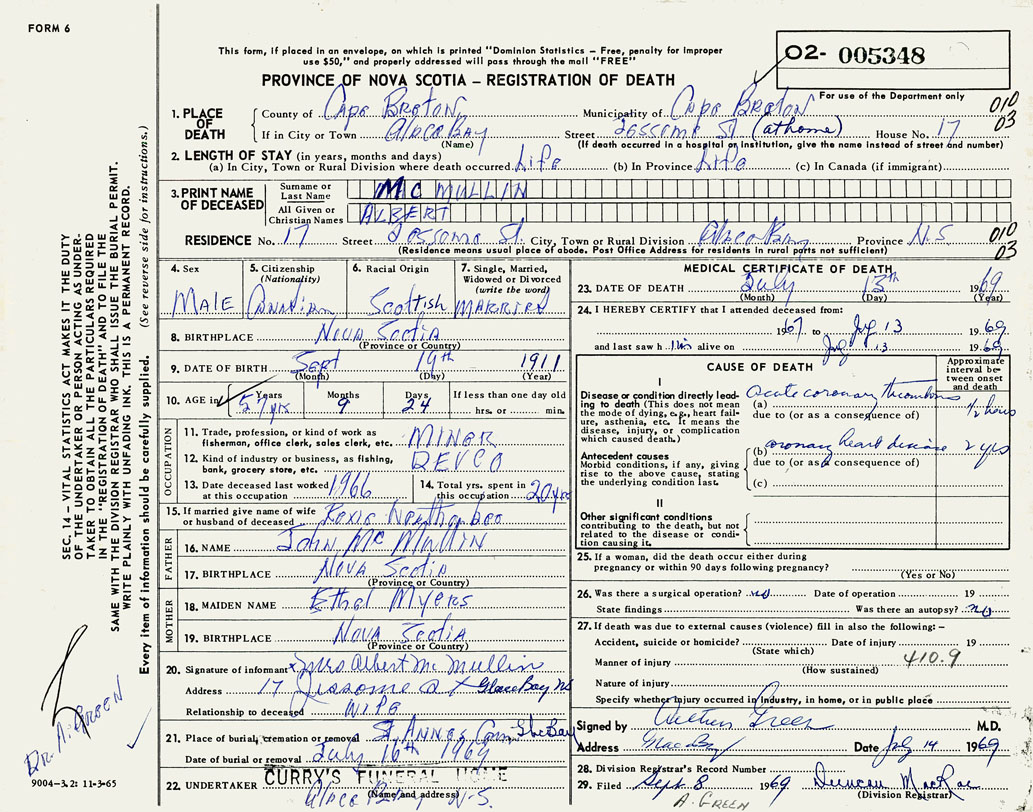 FORM 6
This form, if placed in an envelope, on which is printed "Dominion Statistics – Free, penalty for improper
use $50," and properly addressed will pass through the mail "FREE"
PROVINCE OF NOVA SCOTIA – REGISTRATION OF DEATH
02- 005348
For use of the Department only
010
03
1. PLACE OF DEATH
County of Cape Breton Municipality of Cape Breton
If in City or Town Glace Bay Street (at home) House No. 17
(Name) (If death occurred in a hospital or institution, give the name instead of street and number)
2. LENGTH OF STAY (in years, months and days)
(a) In City, Town or Rural Division where death occurred Life (b) In Province Life (c) In Canada (if immigrant)
3. PRINT NAME OF DECEASED
Surname or Last Name MCMULLIN
All Given or Christian Names ALBERT
RESIDENCE No. 17 Street St. City, Town or Rural Division Glace Bay Province N.S
(Residence means usual place of abode. Post Office Address for residents in rural parts not sufficient)
010
03
4. Sex 5. Citizenship (Nationality) 6. Racial Origin 7. Single, Married, Widowed or Divorced (write the word)
MALE Canadian Scottish MARRIED
8. BIRTHPLACE Nova Scotia
(Province or Country)
9. DATE OF BIRTH Sept 19th 1911
(Month) (Day) (Year)
10. AGE in Years Months Days If less than one day old
57 yrs 9 24 hrs. or min.
OCCUPATION
11. Trade, profession, or kind of work as fisherman, office clerk, sales clerk, etc. MINER
12. Kind of industry or business, as fishing, bank, grocery store, etc. DEVCO
13. Date deceased last worked at this occupation 1966 14. Total yrs. spent in this occupation 20 yrs
15. If married give name of wife or husband of deceased
FATHER
16. NAME John McMullin
17. BIRTHPLACE Nova Scotia
(Province or Country)
MOTHER
18. MAIDEN NAME Ethel Myers
19. BIRTHPLACE Nova Scotia
(Province or Country)
20. Signature of informant x Mrs Albert McMullin
Address 17 Glace Bay NS
Relationship to deceased Wife
21. Place of burial, cremation or removal St. Annes Cem Glce Bay
Date of burial or removal July 16th 1969
22. UNDERTAKER CURRY'S FUNERAL HOME
(Name and address)
Glace Bay N-S.
MEDICAL CERTIFICATE OF DEATH
23. DATE OF DEATH July 13th 1969
(Month) (Day) (Year)
24. I HEREBY CERTIFY that I attended deceased from:
1967 to July 13 1969
and last saw him alive on July 13 1969
CAUSE OF DEATH
Approximate interval between onset and death
I
Disease or condition directly leading to death (This does not mean the mode of dying, e.g., heart failure, asthenia, etc. It means the disease, injury, or complication which caused death.)
(a) acute coronary thrombosis 1/2 hours
due to (or as a consequence of)
Antecedent causes
Morbid conditions, if any, giving rise to the above cause, stating the underlying condition last.
(b) coronary heart disease 2 yrs
due to (or as a consequence of)
(c)
II
Other significant conditions
contributing to the death, but not related to the disease or condition causing it.
25. If a woman, did the death occur either during pregnancy or within 90 days following pregnancy?
(Yes or No)
26. Was there a surgical operation? no Date of operation 19
State findings Was there an autopsy? no
27. If death was due to external causes (violence) fill in also the following: –
Accident, suicide or homicide? Date of injury 19
(State which)
410.9
Manner of injury
(How sustained)
Nature of injury
Specify whether injury occurred in industry, in home, or in public place
Signed by Green M.D.
Address Glace Bay Date July 14 1969
28. Division Registrar's Record Number
29. Filed Sept. 8 1969 Duncan MacRae
(Division Registrar)
A. GREEN
SEC. 14 – VITAL STATISTICS ACT MAKES IT THE DUTY
OF THE UNDERTAKER OR PERSON ACTING AS UNDER-
TAKER TO OBTAIN ALL THE PARTICULARS REQUIRED
IN THE "REGISTRATION OF DEATH" AND TO FILE THE
SAME WITH THE DIVISION REGISTRAR WHO SHALL ISSUE THE BURIAL PERMIT.
WRITE PLAINLY WITH UNFADING INK. THIS IS A PERMANENT RECORD.
Every item of information should be carefully supplied. (See reverse side for instructions.)
DR. A. GREEN
9004-3.2: 11-3-65